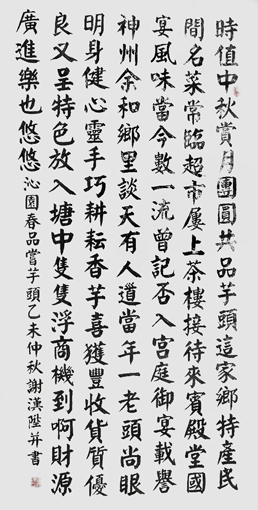 時值中秋賞月團圓共品芋頭這家鄉特產民
間名菜常臨超市屢上茶樓接待來賓殿堂國
宴風味當今數一流曾記否入宮庭御宴載譽
神州余和鄉里談天有人道當年一老頭尚眼
明身健心靈手巧耕耘香芋喜獲豐收貨質優
良又呈特色放入塘中隻隻浮商機到啊財源
廣進樂也悠悠沁園春品嘗芋頭乙未仲秋謝漢陞并書